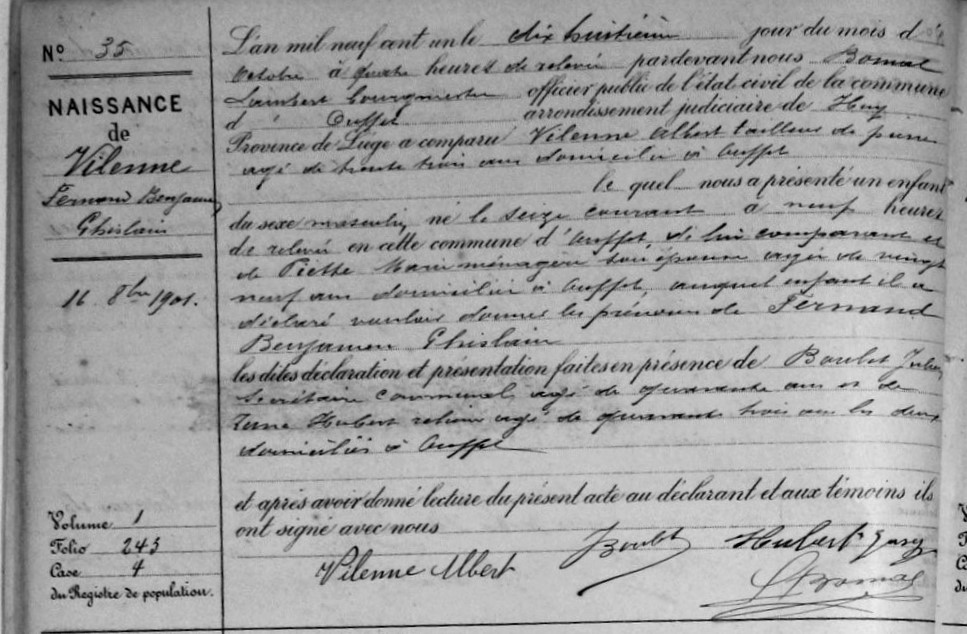 N° 35
NAISSANCE
de
Vilenne
Fernand Benjamin
Ghislain
16 8bre 1901.
Volume 1
Folio 243
Case 4
du Registre de population.
L'an mil neuf cent un le dix huitième jour du mois d'
octobre à quatre heures de relevée pardevant nous Bomal
Lambert bourgmestre officier public de l'état civil de la commune
d' Ouffet arrondissement judiciaire de Huy
Province de Liége a comparu Vilenne Albert tailleur de pierre
agé de trente trois ans domicilié à Ouffet
le quel nous a présenté un enfant
du sexe masculin né le seize courant à neuf heures
de relevée en cette commune d'Ouffet, de lui comparant et
de Piette Marie ménagère son épouse agée de vingt
neuf ans domiciliée à Ouffet, auquel enfant il a
déclaré vouloir donner les prénoms de Fernand
Benjamin Ghislain
les dites déclaration et présentation faites en présence de Boulet Jules
secrétaire communal agé de quarante ans et de
Hubert agé de quarante trois ans les deux
domiciliés à Ouffet
et après avoir donné lecture du présent acte au déclarant et aux témoins ils
ont signé avec nous
Vilenne Albert
JBoulet
Hubert
LBomal